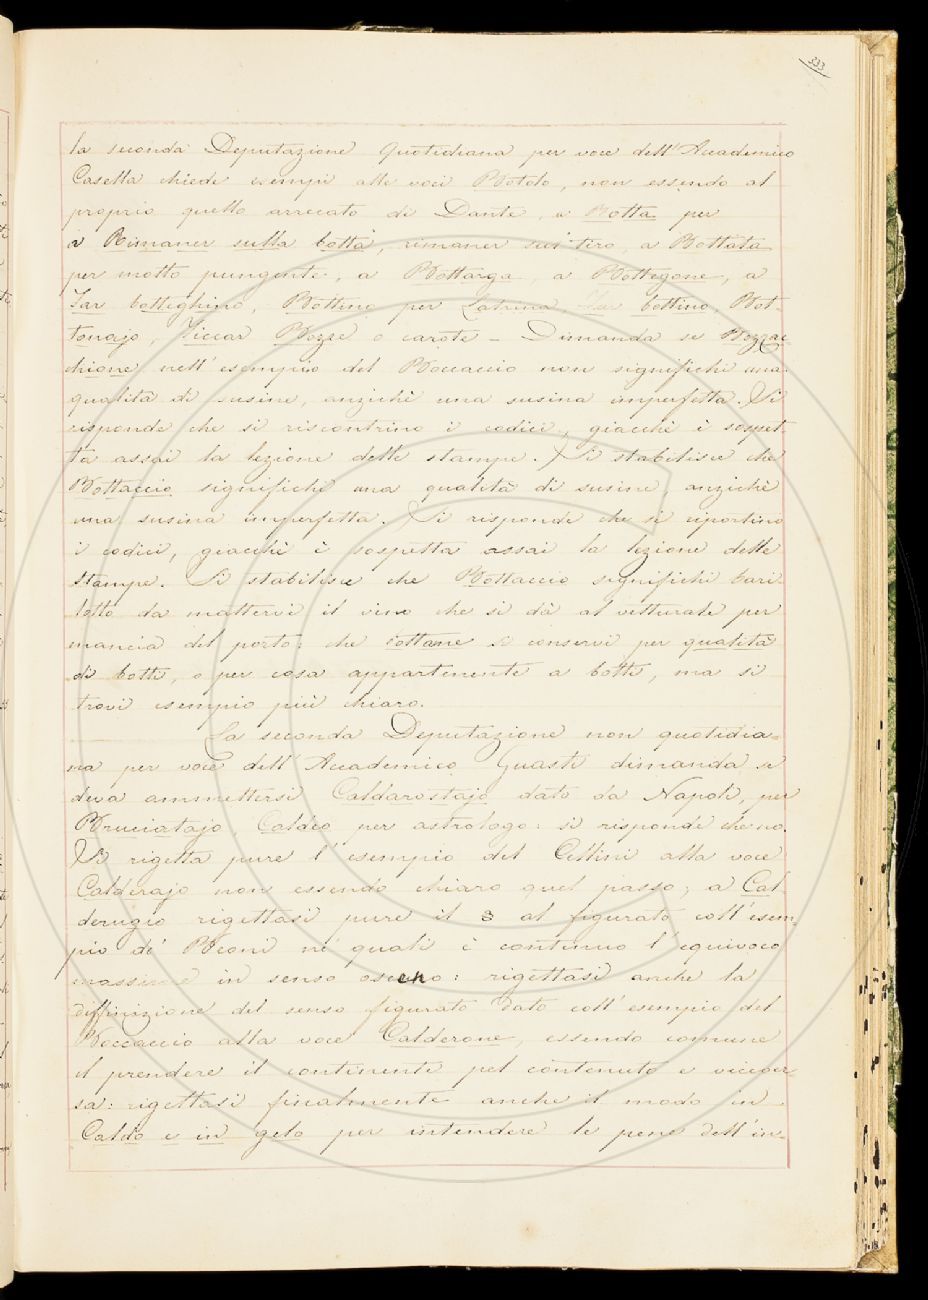 333
la seconda Deputazione quotidiana per voce dell'Accademico
Casella chiede esempii alle voci Botolo, non essendo al
proprio quello arrecato di Dante, a Botta per
a Rimaner sulla botta, rimaner sul tiro, a Bottata
per motto pungente, a Bottarga, a Bottegone, a
Far botteghino, Bottino per Latrina, Far bottino, Bot-
tonajo, Ficcar Bozze o carote – Dimanda se Bozzac
chione nell'esempio del Boccaccio non significhi una
qualità di susine, anzichè una susina imperfetta. Si
risponde che si riscontrino i codici, giacchè è sospet-
ta assai la lezione delle stampe. Si stabilisce che
Bottaccio significhi una qualità di susine, anzichè
una susina imperfetta. Si risponde che si riportino
i codici, giacchè è sospetta assai la lezione delle
stampe. Si stabilisce che Bottaccio significhi bari
lotto da mettervi il vino che si dà al vetturale per
mancia del porto: che bottame si conservi per qualità
di botti, o per cosa appartenente a botte, ma si
trovi esempio più chiaro.
La seconda Deputazione non quotidia-
na per voce dell'Accademico Guasti dimanda se
deva ammettersi Caldarostajo dato da Napoli, per
Bruciatajo, Caldeo per astrologo: si risponde che no.
Si rigetta pure l'esempio del Cellini alla voce
Calderajo non essendo chiaro quel passo; a Cal
derugio rigettasi pure il § al figurato coll'esem
pio de' Beoni ne' quali è continuo l'equivoco
massime in senso osceno: rigettasi anche la
diffinizione del senso figurato dato coll'esempio del
Boccaccio alla voce Calderone, essendo comune
il prendere il continente pel contenuto e vicever-
sa: rigettasi finalmente anche il modo in
Caldo e in gelo per intendere le pene dell'in-